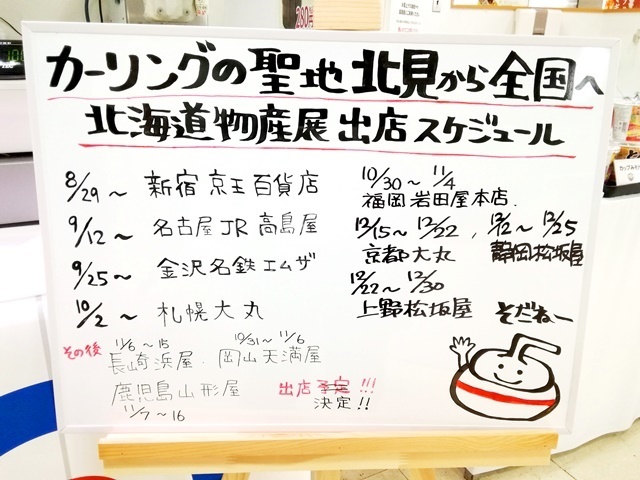 カーリングの聖地 北見から全国へ
北海道物産展 出店スケジュール
8/29〜 新宿 京王百貨店
9/12〜 名古屋JR高島屋
9/25〜 金沢名鉄エムザ
10/2〜 札幌大丸
その後
11/6〜15
長崎浜屋.
10/31〜11/6
岡山天満屋
鹿児島山形屋
11/7〜16
出店予定!!!
決定!!
10/30〜11/4
福岡岩田屋本店.
12/15〜12/22,
京都大丸
12/12〜12/25
静岡松坂屋
12/22〜12/30
上野松坂屋
そだねー